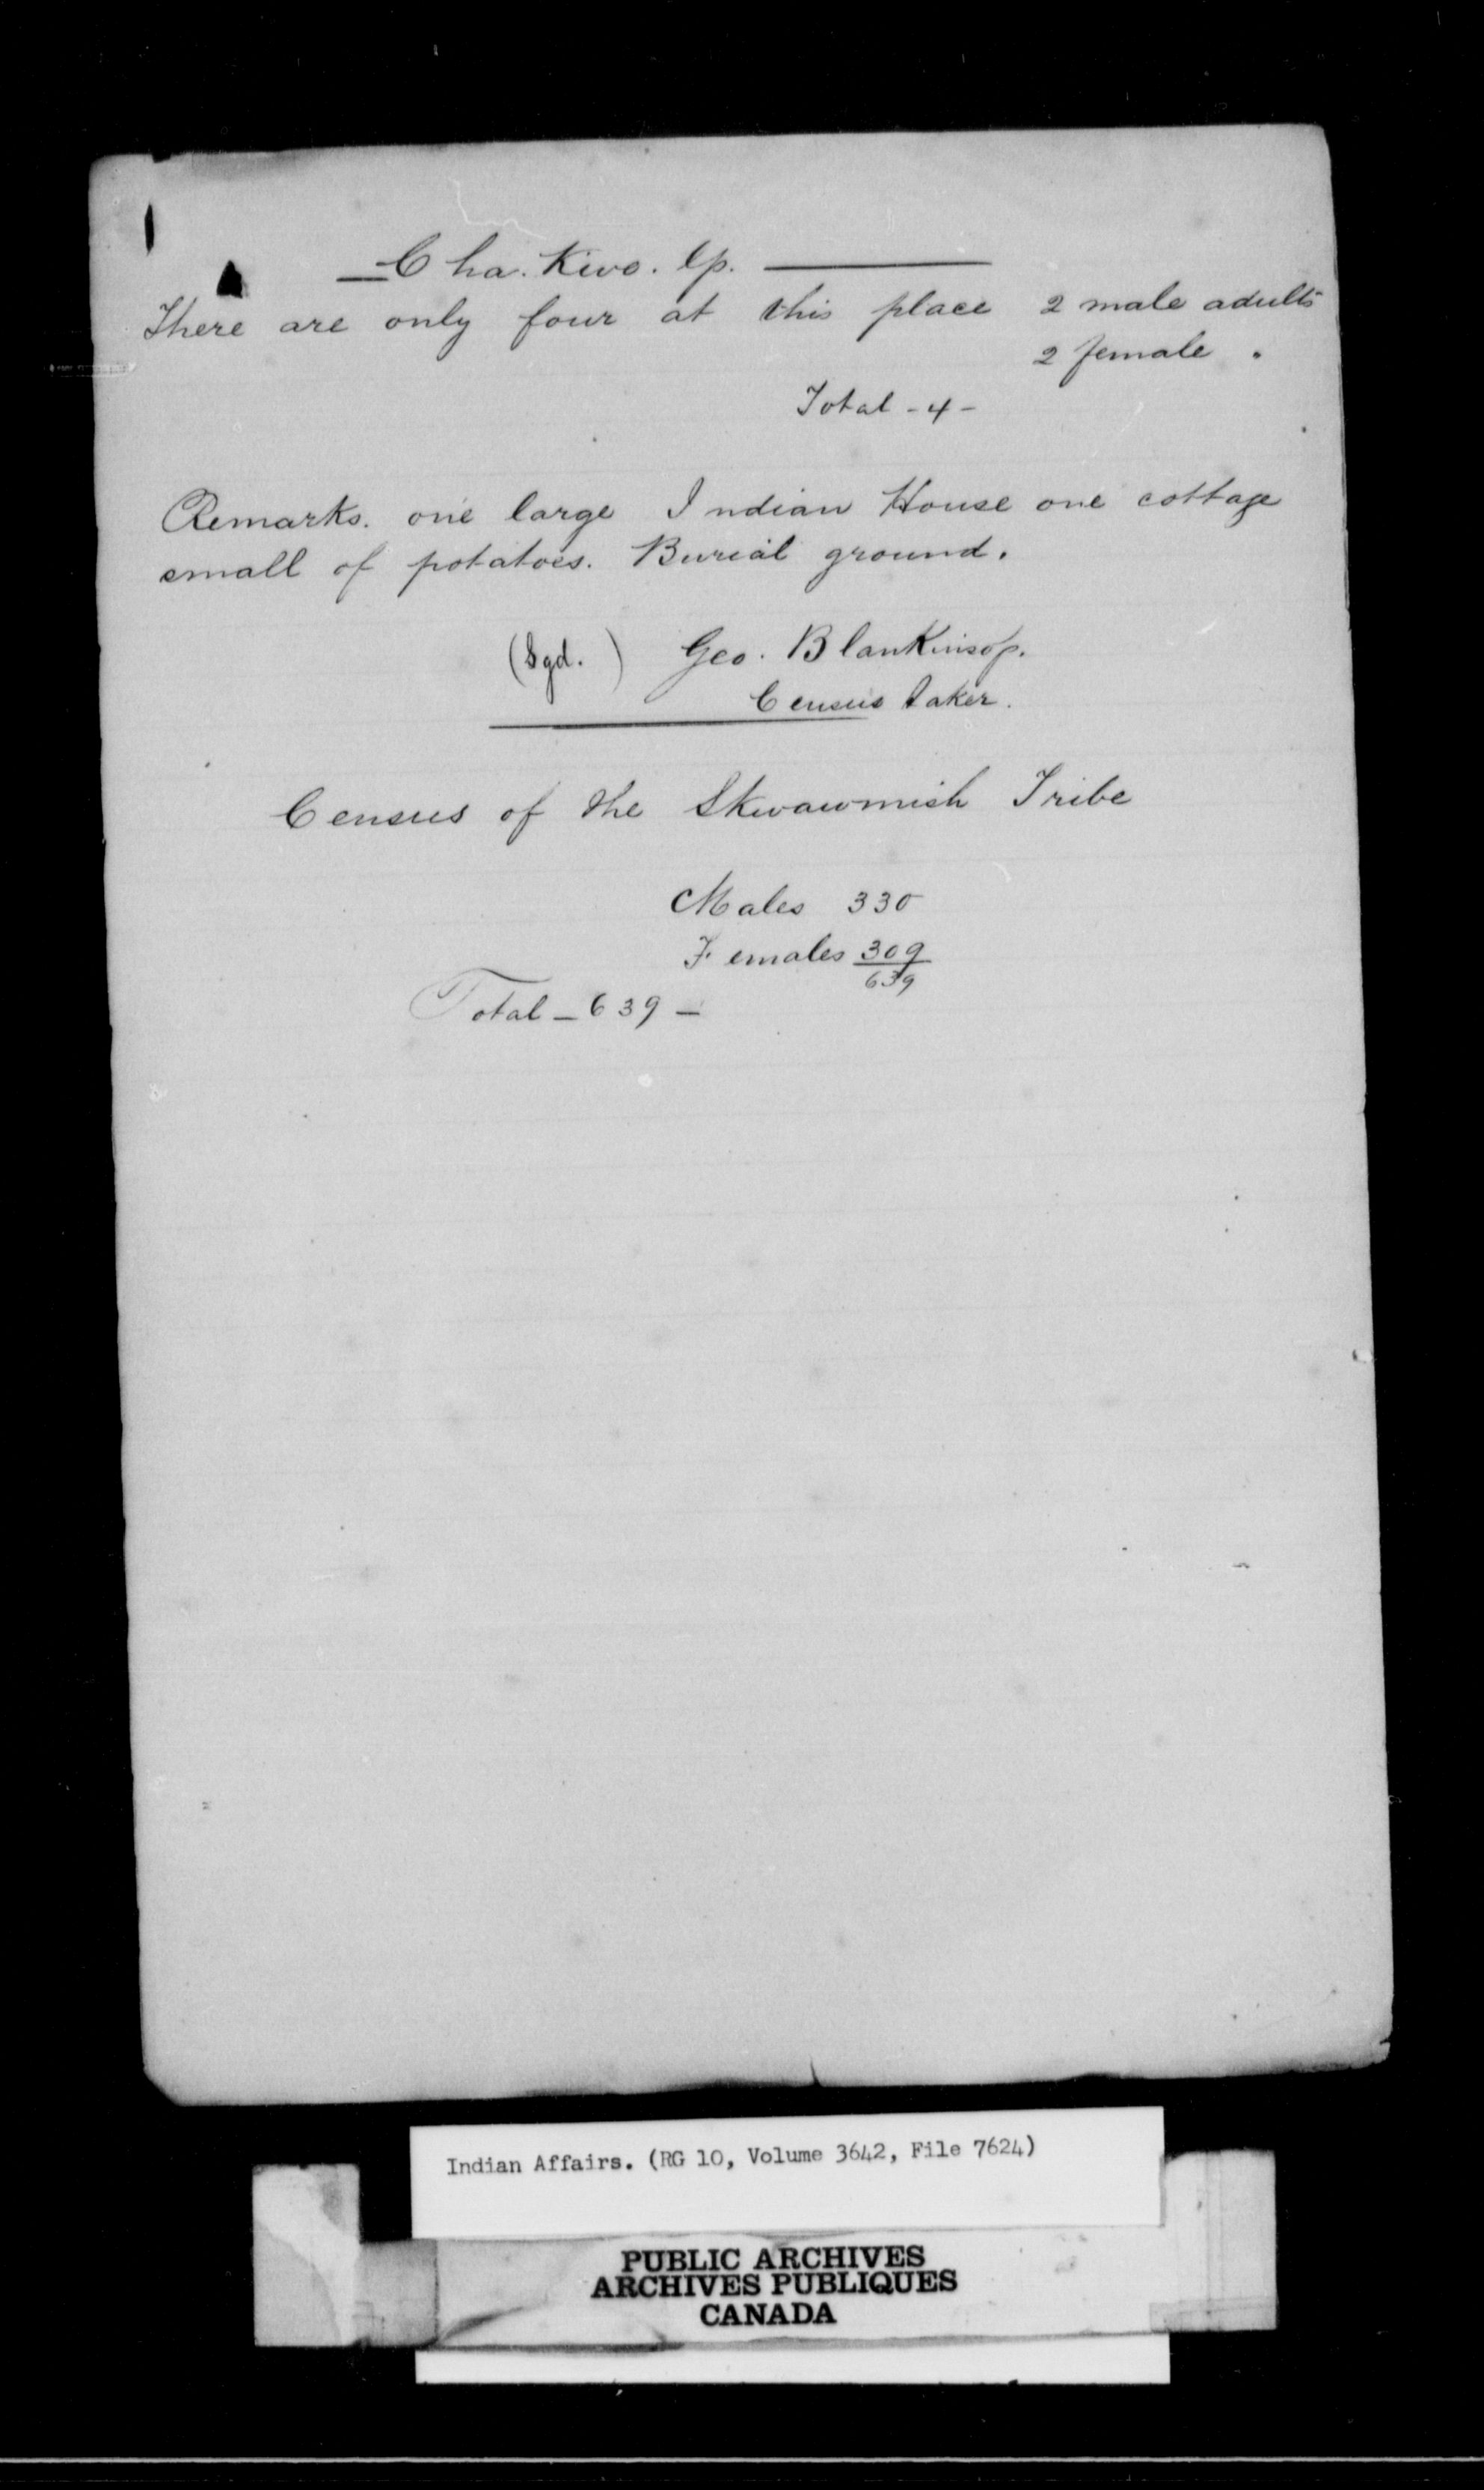 Cha. Kwo. Up.
There are only four at this place 2 male adults
2 female "
Total - 4 -
Remarks. one large Indian House one cottage
small of potatoes. Burial ground.
(Sgd.) Geo. Blankinsop.
Census taker.
Census of the Skwawmish Tribe
Males 330
Females 309
639
Total - 639 -
Indian Affairs. (RG 10, Volume 3642, File 7624)
PUBLIC ARCHIVES
ARCHIVES PUBLIQUES
CANADA